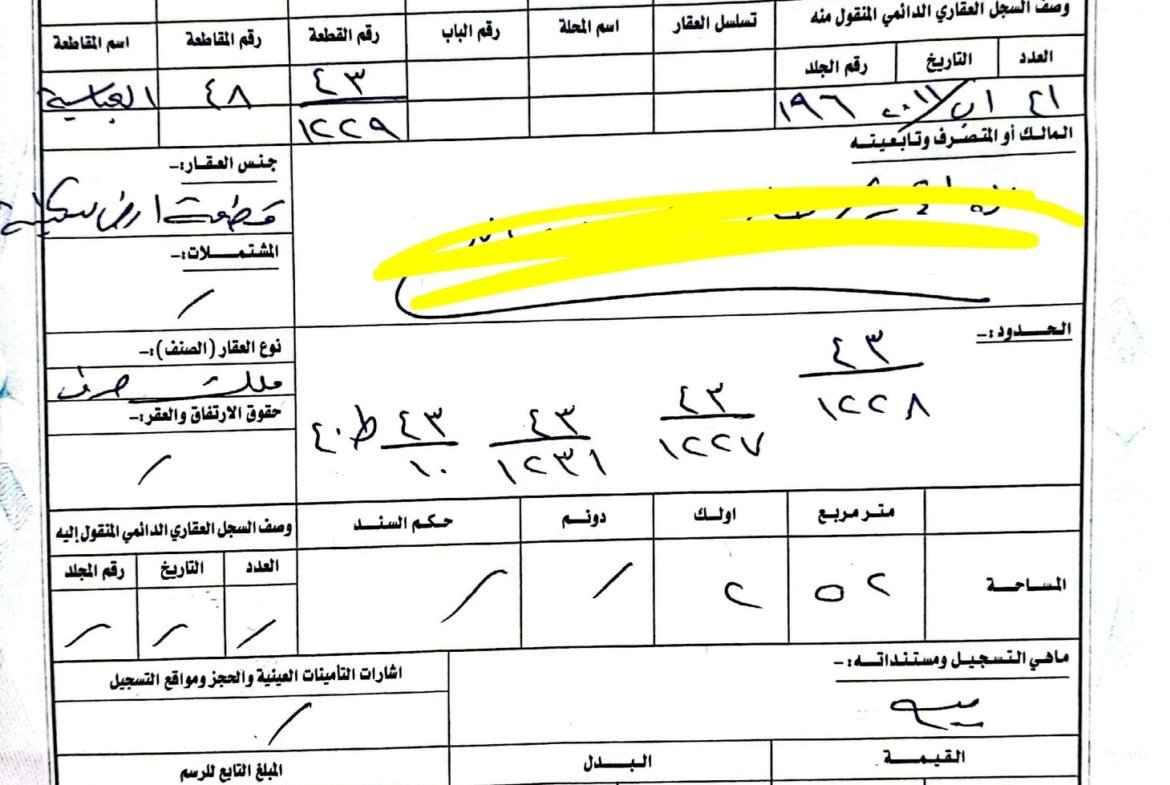 وصف السجل العقاري الدائمي المنقول منه
تسلسل العقار
اسم المحلة
رقم الباب
رقم القطعة
رقم المقاطعة
اسم المقاطعة
العدد
التاريخ
رقم الجلد
٢١
اب/٢٠١١
١٩٦
٤٣
١٢٢٩
٤٨
العباسية
المالك أو المتصرف وتابعيته
جنس العقار:-
قطعة ارض سكنية
المشتملات:-
/
الحدود:-
٤٣
١٢٢٨
٤٣
١٢٢٧
٤٣
١٢٣١
٤٣
١٠
ط٤٠
نوع العقار (الصنف):-
ملك صرف
حقوق الارتفاق والعقر:-
/
متر مربع
اولك
دونم
حكم السند
وصف السجل العقاري الدائمي المنقول إليه
المساحة
٥٢
٢
/
/
العدد
التاريخ
رقم المجلد
/
/
/
ماهي التسجيل ومستنداته:-
اشارات التأمينات العينية والحجز ومواقع التسجيل
/
القيمة
البدل
المبلغ التابع للرسم